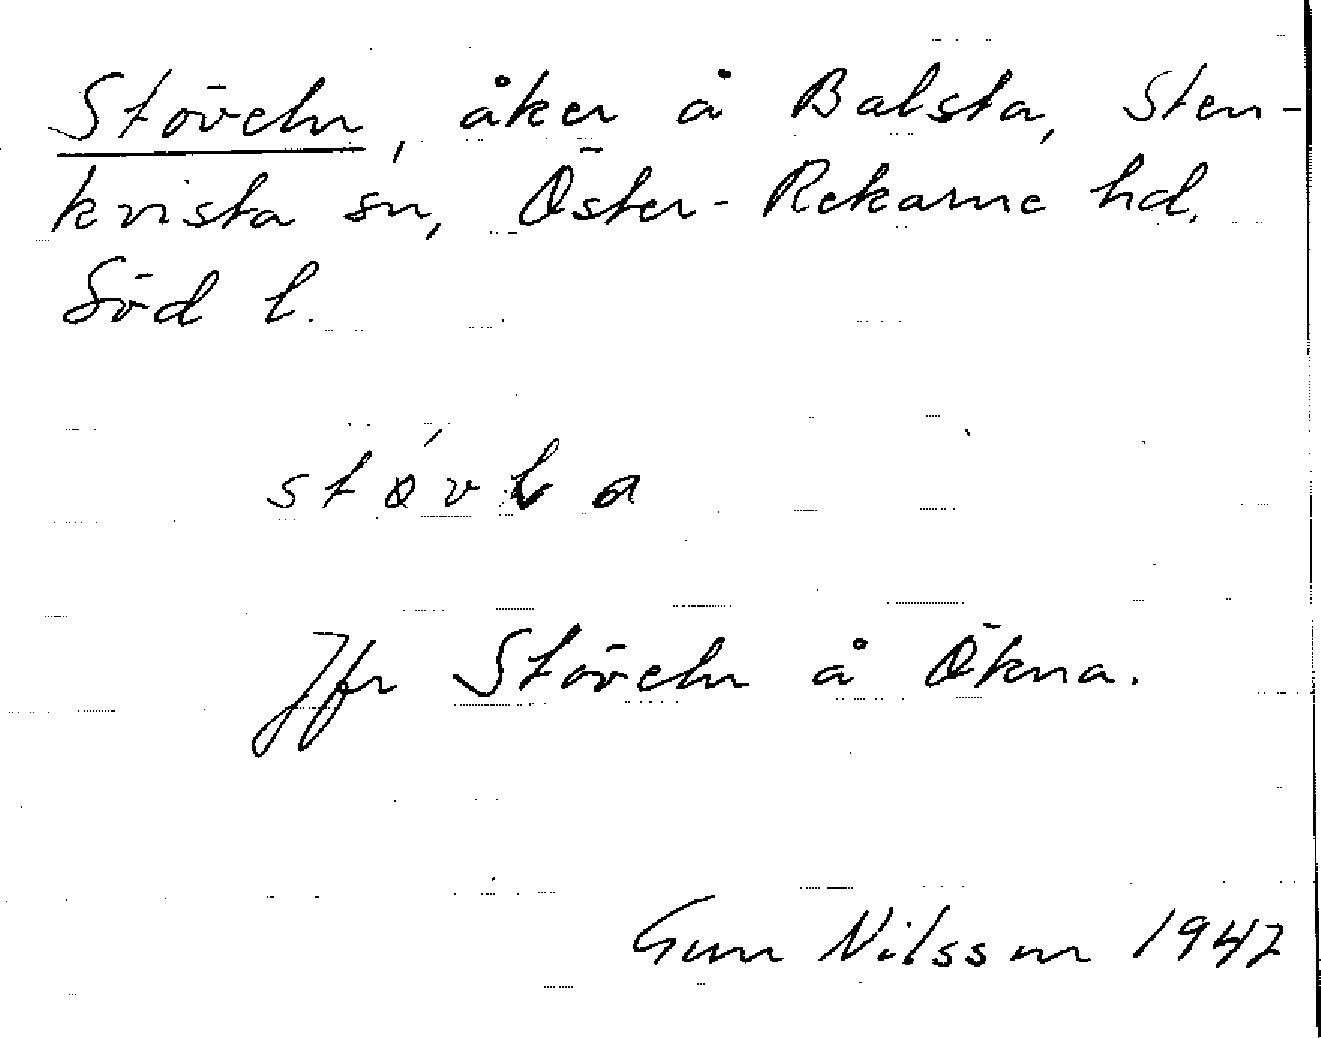 Stöveln, åker å Balsta, Sten-
kvista sn, Öster-Rekarne hd.
Söd l.
Jfr Stöveln å Ökna.
Gun Nilsson 1947